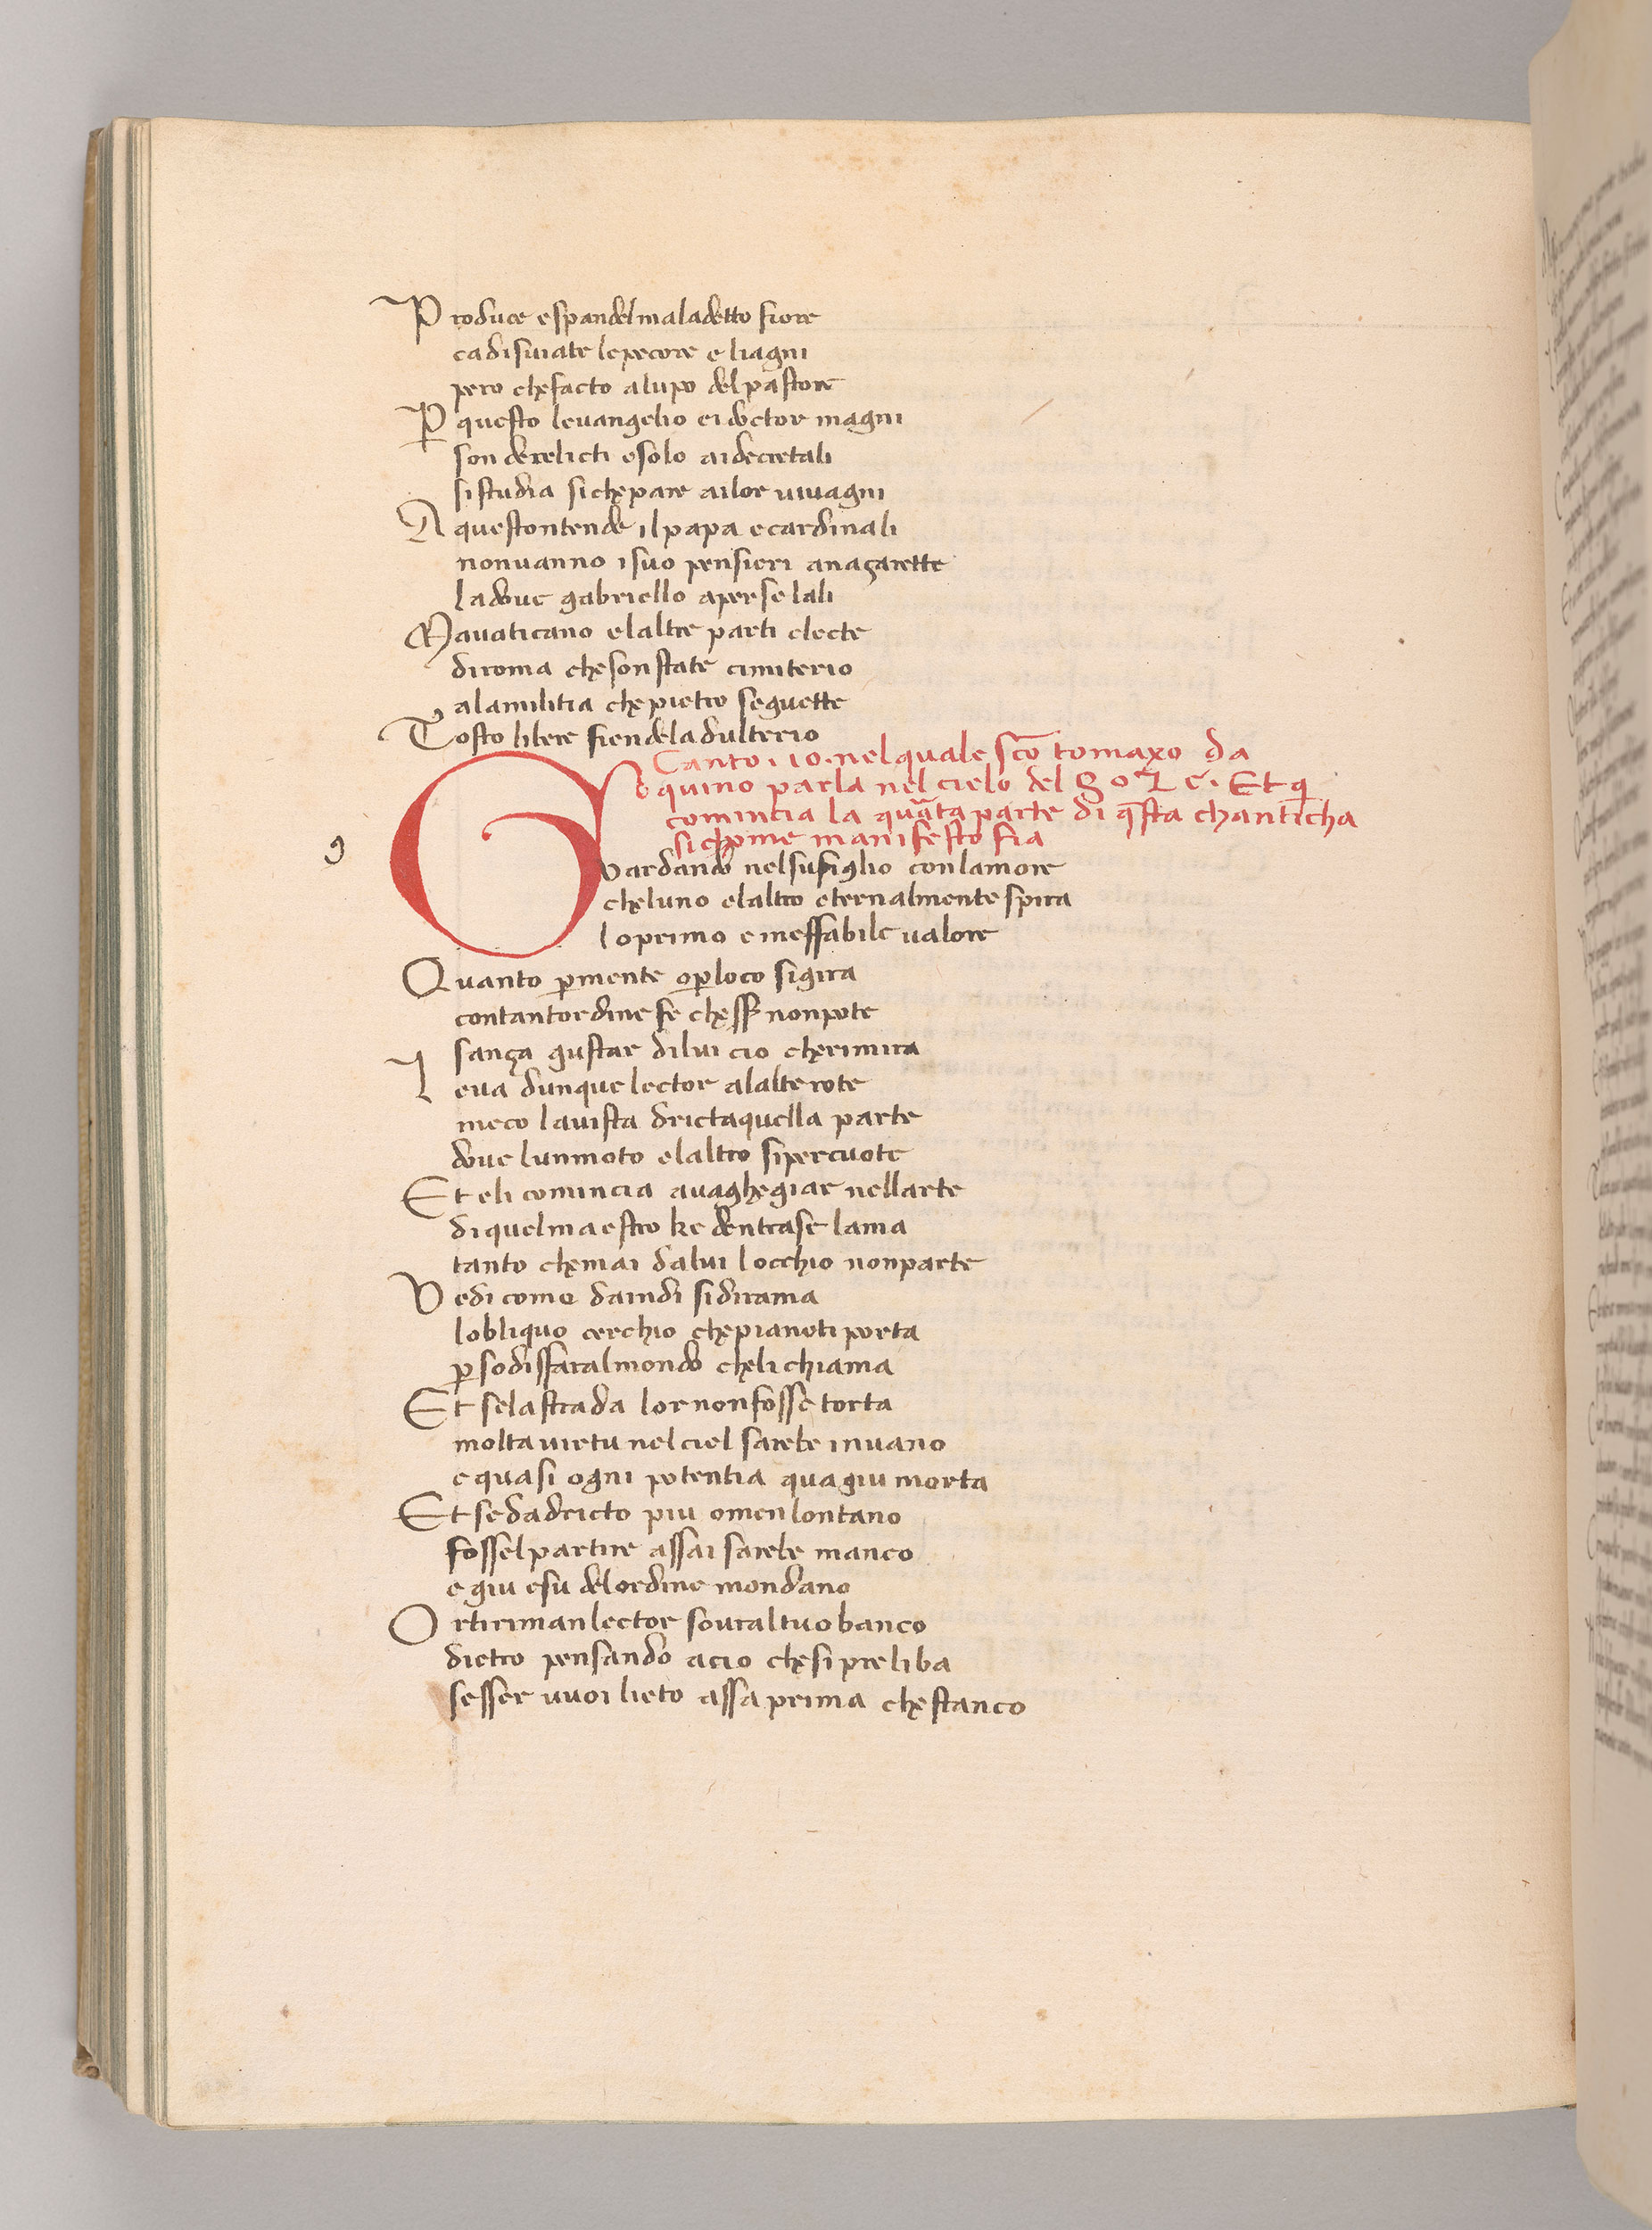 Produce e spandel maladetto fiore
ca disuiate le pecore e li agni
pero che facto a lupo del pastore
P questo leuangelio e i doctor magni
son derelicti e solo ai decretali
si studia si che pare ai lor uiuagni
A questontende il papa e cardinali
non uanno i suo pensieri anaçarette
la doue gabriello aperse lali
Ma uaticano e laltre parti electe
di roma che son state cimiterio
a la militia che pietro seguette
Tosto libere fien de la dulterio
Canto .10. nel quale sco tomaxo da
quino parla nel cielo del sole. Et q
comincia la quata parte di qsta chanticha
sichome manifesto fia
g
Guardando nel su figlio con lamore
che luno e laltro eternalmente spira
lo primo e ineffabile ualore
Quanto p mente o p loco si gira
con tantordine fe chesser non pote
sança gustar di lui cio che rimira
Leua dunque lector a lalte rote
meco la uista dricta quella parte
doue lun moto e laltro si percuote
Et eli comincia a uaghegiar nellarte
di quel maestro ke dentra se lama
tanto che mai da lui locchio non parte
Vedi come da indi si dirama
lobliquo cerchio che pianoti porta
p sodisfar al mondo che li chiama
Et se la strada lor non fosse torta
molta uirtu nel ciel sarebe in uano
e quasi ogni potentia qua giu morta
Et se da dricto piu o men lontano
fossel partire assai sarebe manco
e giu e su del ordine mondano
Or ti riman lector soural tuo banco
dietro pensando a cio che si preliba
sesser uuoi lieto assa prima che stanco